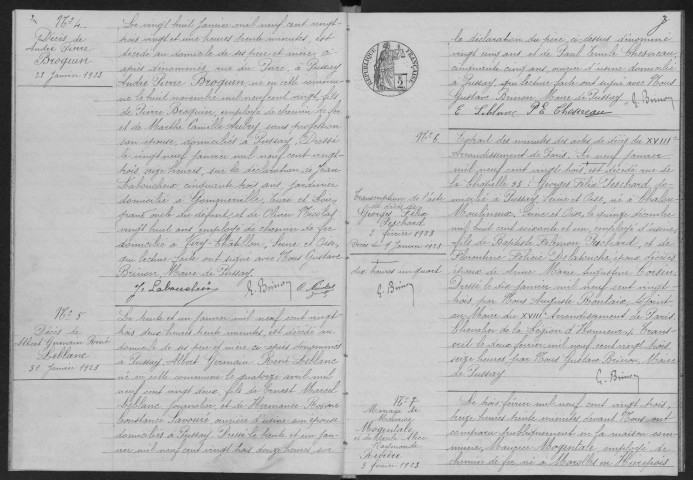 N° 4
Décès de
André Pierre
Broguin
28 Janvier 1923
Le vingt huit Janvier mil neuf cent vingt-
trois vingt et une heures trente minutes, est
décédé au domicile de ses père et mère, ci
après dénommés rue du Parc, à Pussay
André Pierre Broguin né en cette commune
le huit novembre mil neuf cent vingt, fils
de Pierre Broguin, employé de chemin de fer
et de Marthe Camille Aubry sans profession
son épouse, domiciliés à Pussay. Dressé
le vingt neuf Janvier mil neuf cent vingt-
trois seize heures, sur la déclaration de Jean
Laboucheix cinquante trois ans, jardinier
domicilié à Gommerville, Eure et Loir,
du défunt, et de
vingt huit ans employé de chemin de fer
domicilié à Seine et Oise,
qui lecture faite ont signé avec Nous Gustave
Brinon, Maire de Pussay.
G. Brinon
N° 5
Décès de
Albert Germain René
Leblanc
31 Janvier 1923
Le trente et un janvier mil neuf cent vingt-
trois deux heures trente minutes, est décédé au
domicile de ses père et mère ci après dénommés
à Pussay Albert Germain René Leblanc
né en cette commune le quatorze avril mil
neuf cent vingt deux, fils de Ernest Marcel
Leblanc journalier et de Hermance
Constance ouvrière d'usine son épouse
domiciliés à Pussay. Dressé le trente et un jan-
vier mil neuf cent vingt trois douze heures, sur
3
la déclaration du père, ci dessus dénommé
vingt cinq ans et de Paul Emile Chesneau
cinquante cinq ans, ouvrier d'usine domicilié
à Pussay, qui lecture faite ont signé avec Nous
Gustave Brinon, Maire de Pussay.
G. Brinon
E Leblanc P E Chesneau
RÉPUBLIQUE FRANÇAISE
N° 6
Transcription de l'acte
de décès de
Georges Félix
Peschard
2 février 1923
Décès du 9 Janvier 1923
dix heures un quart
G. Brinon
Extrait des minutes des actes de décès du XVIII°
Arrondissement de Paris. Le neuf janvier
mil neuf cent vingt trois est décédé rue de
la Chapelle Georges Félix Peschard do-
micilié à Pussay, Seine et Oise, né à
Moulineux, Seine et Oise, le quinze décembre
mil huit cent soixante et un, employé d'usine,
fils de Baptiste Peschard, et de
Florentine Félicie Delatouche, époux décédés
époux de Anne Marie Augustine
Dressé le dix janvier mil neuf cent vingt
trois, par Nous Auguste adjoint
au Maire du XVIII° Arrondissement de Paris
Chevalier de la Légion d'Honneur. Trans-
crit le deux février mil neuf cent vingt trois
seize heures, par Nous Gustave Brinon, Maire
de Pussay
G. Brinon
N° 7
Mariage de
Maurice
Mogentale
et de
3 février 1923
Le trois février mil neuf cent vingt trois,
heures trente minutes devant Nous ont
comparu publiquement en la maison com-
mune, Maurice Mogentale employé de
chemin de fer né à Marolles en Hurepoix